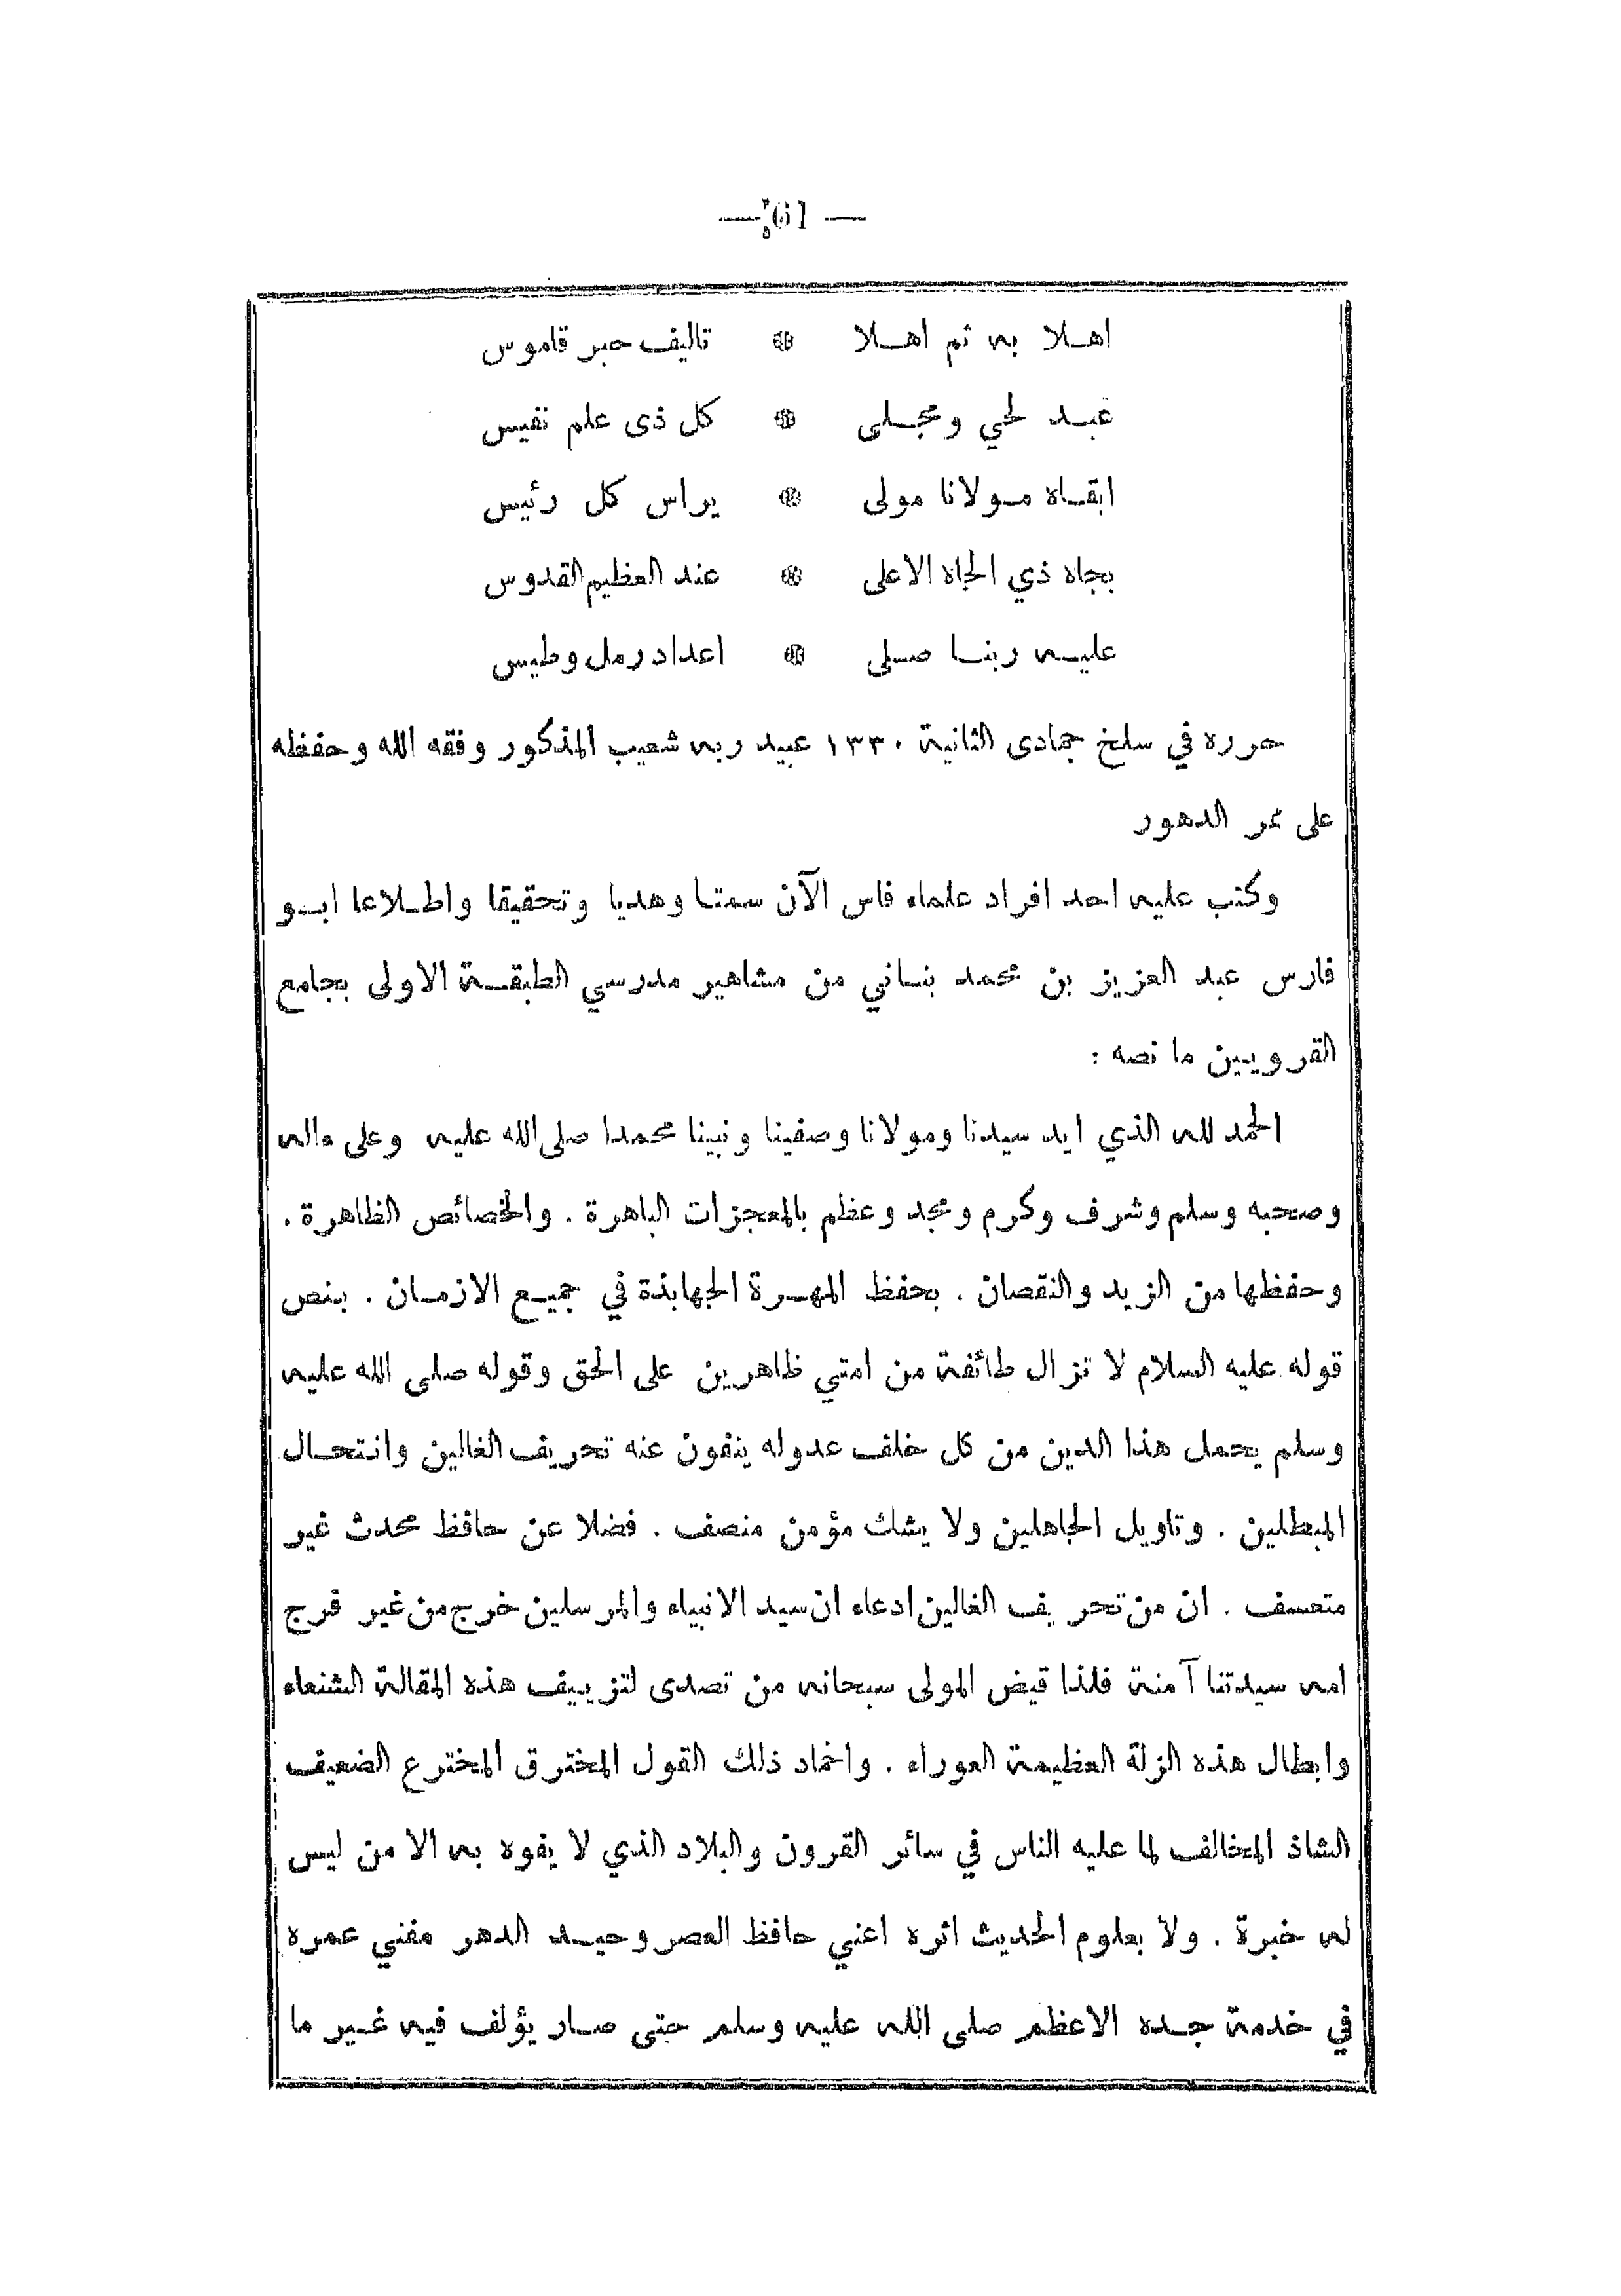 — 61 —
اهلا به ثم اهلا ❊ تاليف حبر قاموس
عبد لحي ومجلى ❊ كل ذى علم نفيس
ابقاه مولانا مولى ❊ يراس كل رئيس
بجاه ذي الجاه الاعلى ❊ عند العظيم القدوس
عليه ربنا صلى ❊ اعداد رمل وطيس
حرره في سلخ جمادى الثانية ١٣٣٠ عبيد ربه شعيب المذكور وفقه الله وحفظه
على ممر الدهور
وكتب عليه احد افراد علماء فاس الآن سمتا وهديا وتحقيقا واطلاعا ابو
فارس عبد العزيز بن محمد بناني من مشاهير مدرسي الطبقة الاولى بجامع
القرويين ما نصه :
الحمد لله الذي ايد سيدنا ومولانا وصفينا ونبينا محمدا صلى الله عليه وعلى ءاله
وصحبه وسلم وشرف وكرم ومجد وعظم بالمعجزات الباهرة . والخصائص الظاهرة .
وحفظها من الزيد والنقصان . بحفظ المهرة الجهابذة في جميع الازمان . بنص
قوله عليه السلام لا تزال طائفة من امتي ظاهرين على الحق وقوله صلى الله عليه
وسلم يحمل هذا الدين من كل خلف عدوله ينفون عنه تحريف الغالين وانتحال
المبطلين . وتاويل الجاهلين ولا يشك مؤمن منصف . فضلا عن حافظ محدث غير
متعسف . ان من تحريف الغالين ادعاء ان سيد الانبياء والمرسلين خرج من غير فرج
امه سيدتنا آمنة فلذا قيض المولى سبحانه من تصدى لتزييف هذه المقالة الشنعاء
وابطال هذه الزلة العظيمة العوراء . واخماد ذلك القول المخترق المخترع الضعيف
الشاذ المخالف لما عليه الناس في سائر القرون والبلاد الذي لا يفوه به الا من ليس
له خبرة . ولا بعلوم الحديث اثره اعني حافظ العصر وحيد الدهر مفني عمره
في خدمة جده الاعظم صلى الله عليه وسلم حتى صار يؤلف فيه غير ما